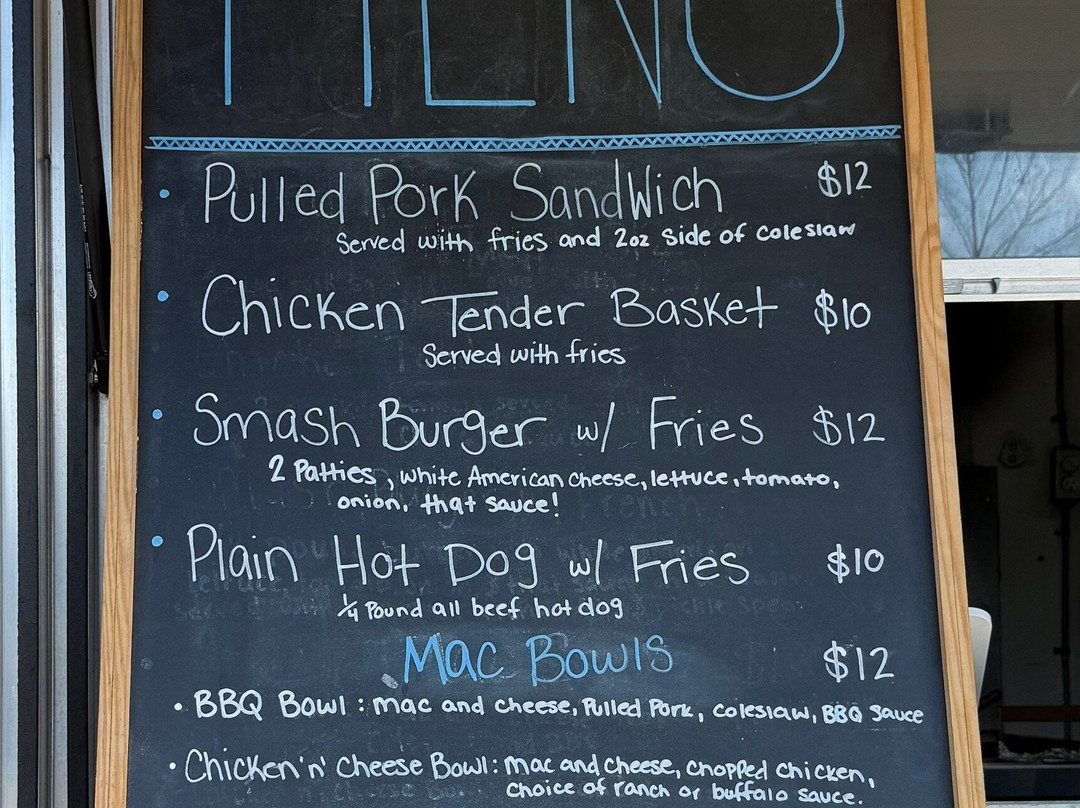 MENU
• Pulled Pork Sandwich $12
Served with fries and 2oz Side of coleslaw
• Chicken Tender Basket $10
Served with fries
• Smash Burger w/ Fries $12
2 Patties, white American cheese, lettuce, tomato,
onion, that sauce!
• Plain Hot Dog w/ Fries $10
1/4 Pound all beef hot dog
Mac Bowls $12
• BBQ Bowl: mac and cheese, Pulled Pork, coleslaw, BBQ Sauce
• Chicken 'n' Cheese Bowl: mac and cheese, chopped chicken,
choice of ranch or buffalo sauce.